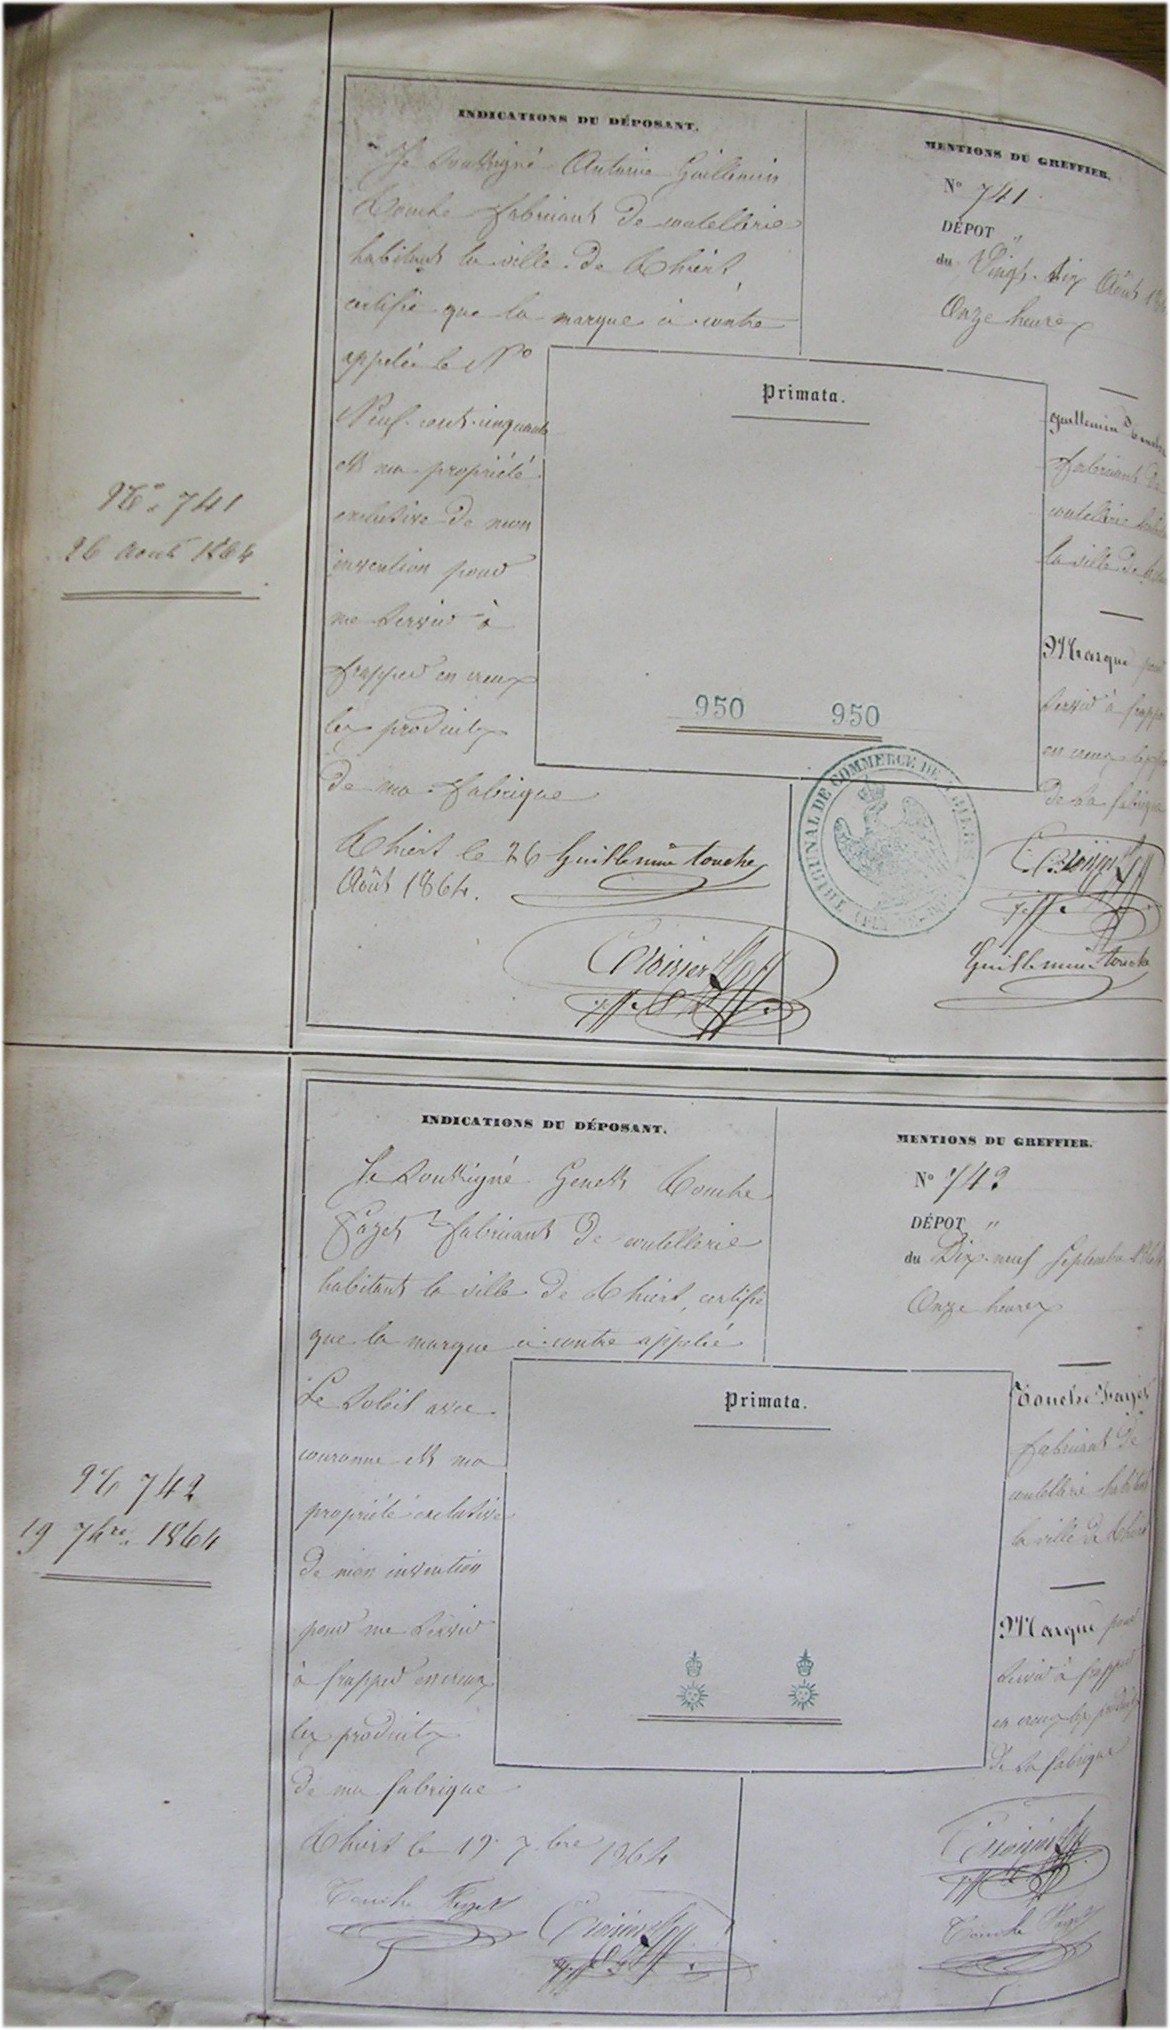 N° 741
26 Aout 1864
INDICATIONS DU DÉPOSANT.
Je soussigné Antoine Guillemin
Touche fabricant de coutellerie
habitant la ville de Thiers,
certifie que la marque ci-contre
appelée le N°
Neuf-cent-cinquante
est ma propriété
exclusive de mon
invention pour
me servir à
frapper en creux
les produits
de ma fabrique
Thiers le 26
Août 1864.
Guillemin touche
Croizier
Primata.
950 950
TRIBUNAL DE COMMERCE DE THIERS
MENTIONS DU GREFFIER.
N° 741
DÉPOT "
du Vingt-Six Août
Onze heures
Guillemin Touche
fabricant de
coutellerie
la ville de
Marque pour
servir à frapper
en creux les
de sa fabrique
Croizier
Guillemin touche
N° 742
19 7bre 1864
INDICATIONS DU DÉPOSANT.
Je soussigné Genest Touche
Fayet fabricant de coutellerie
habitant la ville de Thiers, certifie
que la marque ci-contre appelée
Le Soleil avec
couronne est ma
propriété exclusive
de mon invention
pour me servir
à frapper en creux
les produits
de ma fabrique
Thiers le 19 7bre 1864
Touche Fayet
Croizier
Primata.
MENTIONS DU GREFFIER.
N° 742
DÉPOT "
du Dix-neuf Septembre 1864
Onze heures
Touche Fayet
fabricant de
coutellerie habitant
la ville de Thiers
Marque pour
servir à frapper
en creux les produits
de sa fabrique
Croizier
Touche Fayet